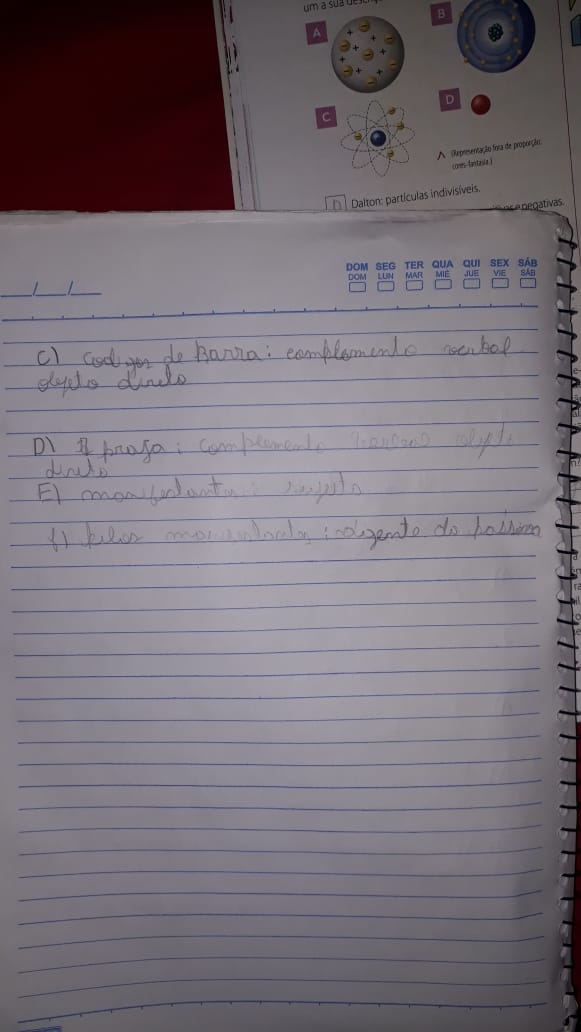 um a sua
A
B
C
D
(Representação fora de proporção;
cores-fantasia.)
D Dalton: partículas indivisíveis.
negativas.
DOM SEG TER QUA QUI SEX SÁB
DOM LUN MAR MIÉ JUE VIE SÁB
__/__/__
C) codigos de Barra: complemento verbal
objeto direto
D) A prasa: complemento objeto
direto
E) manifestante: sujeito
f) pelos manifestantes: do